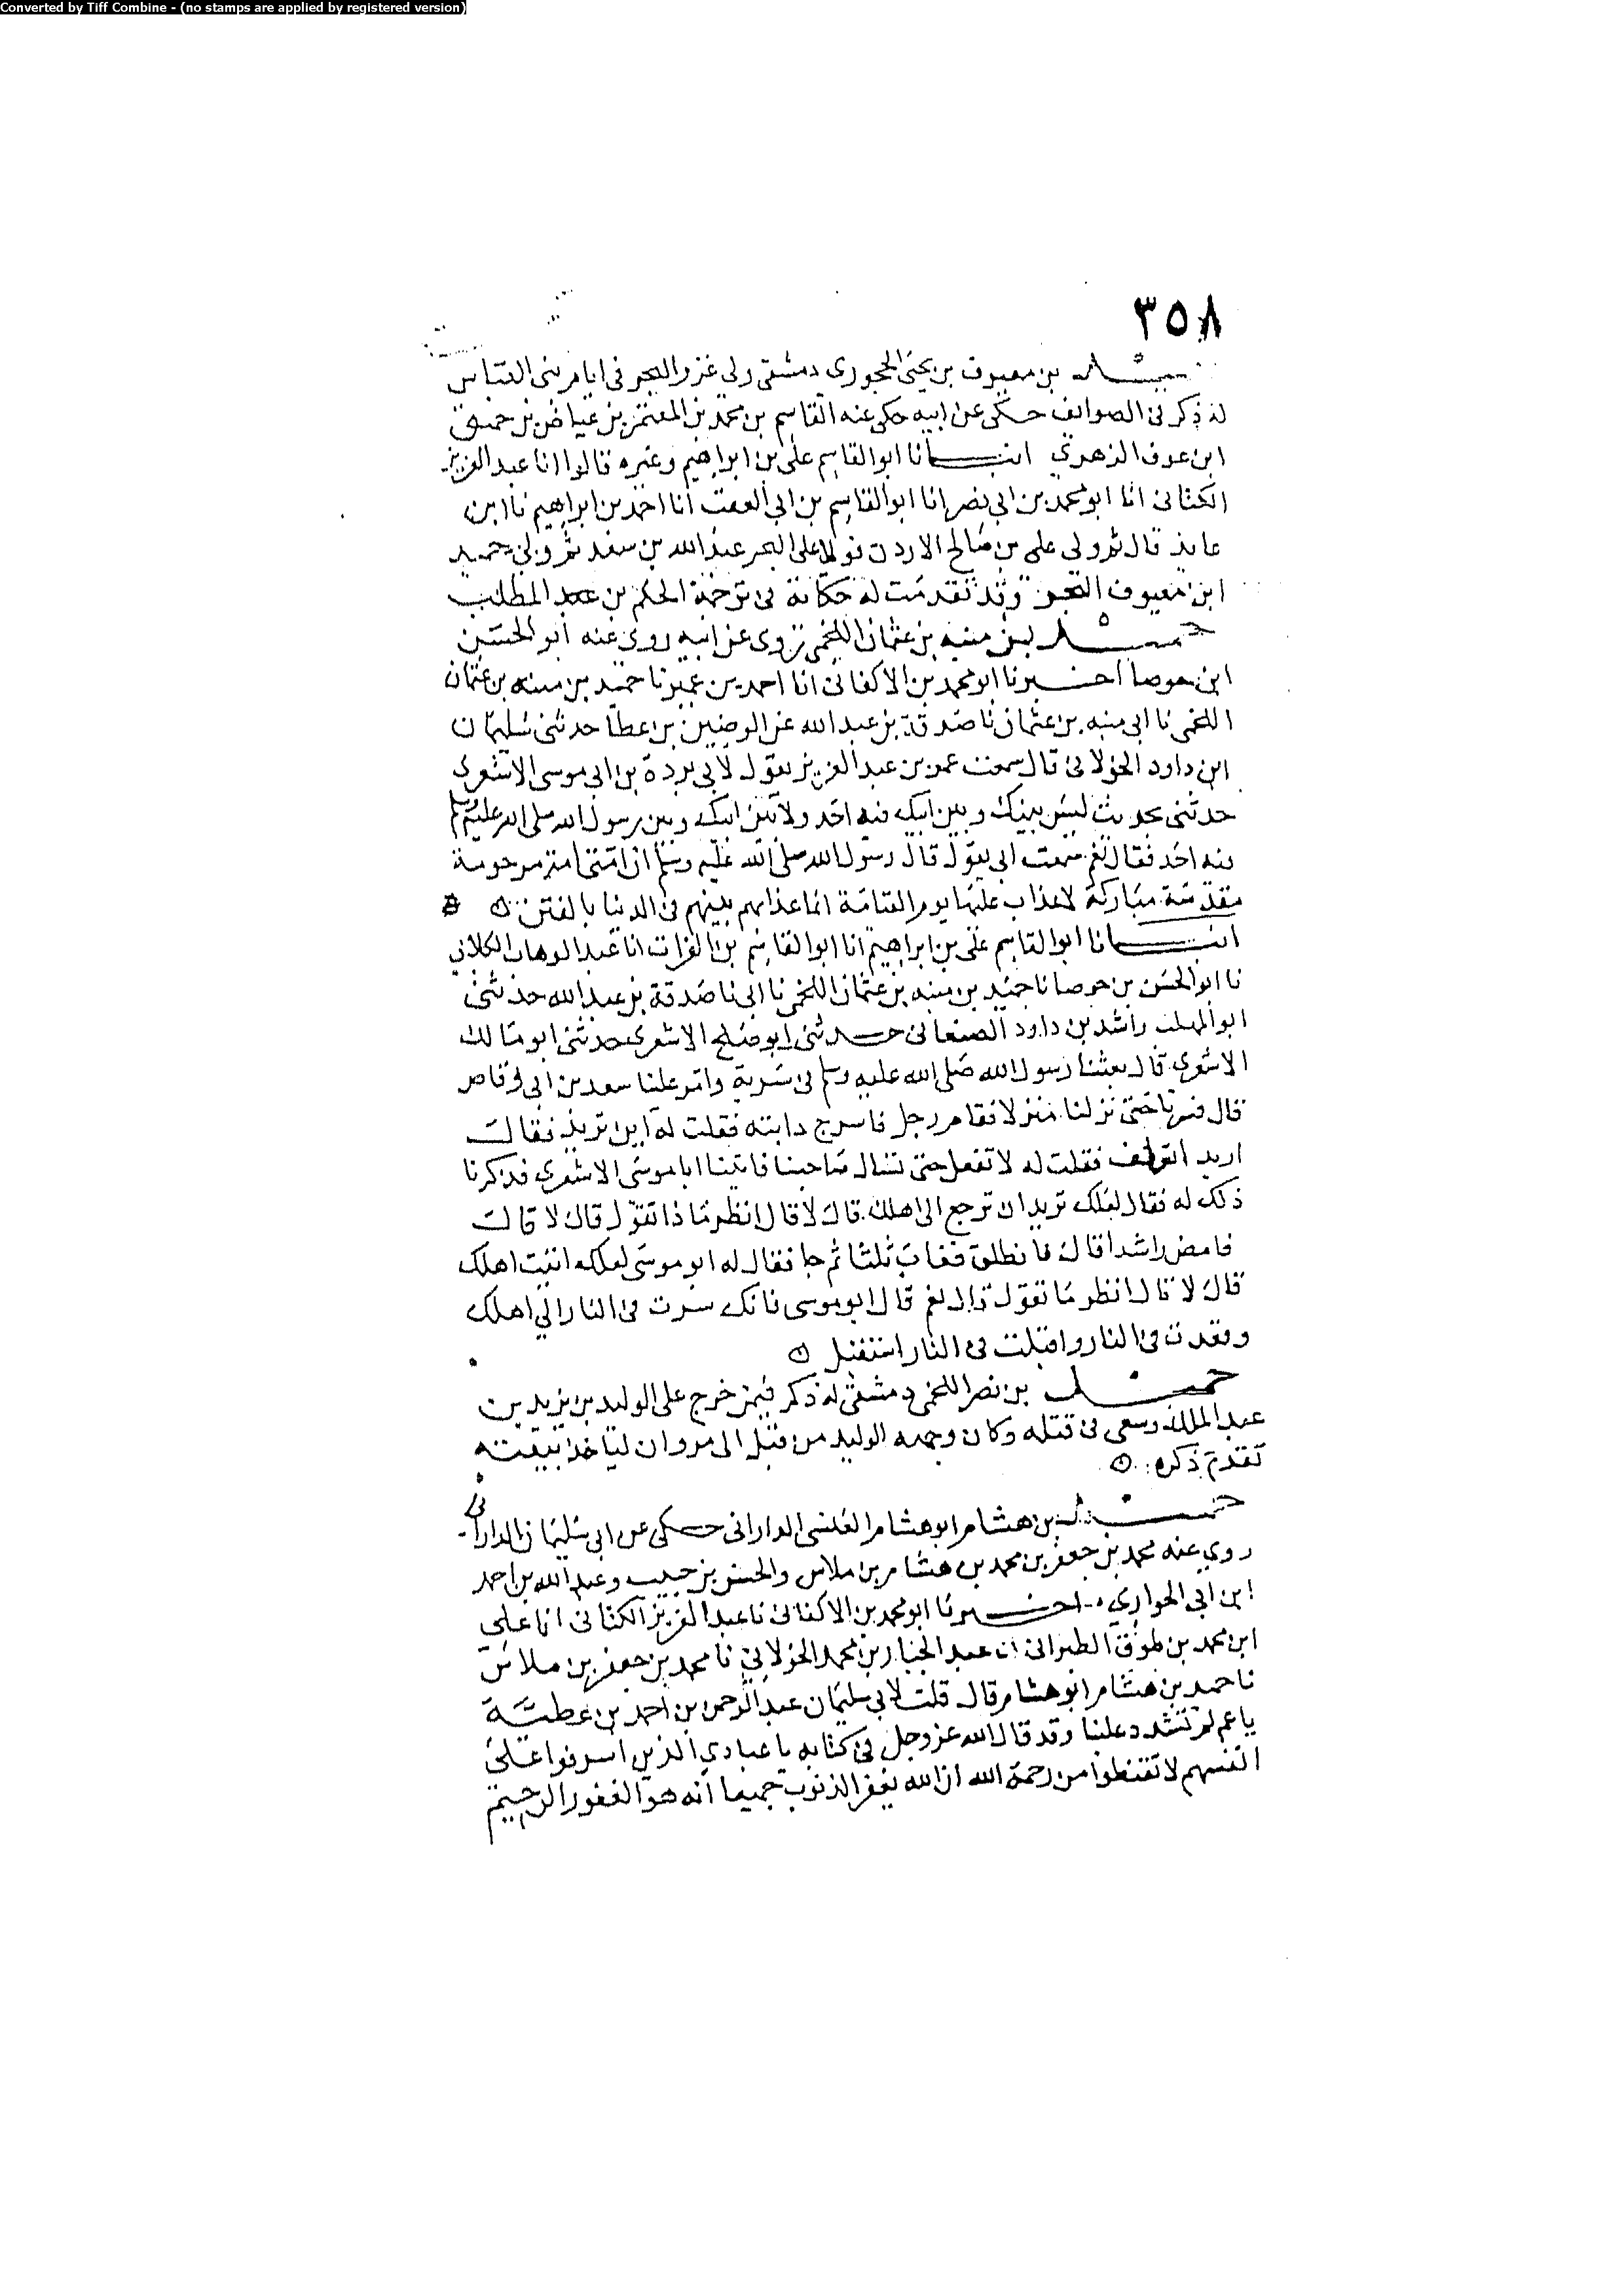 Converted by Tiff Combine - (no stamps are applied by registered version)
٣٥٨
حميد بن معيوف بن يحيى الحجوري دمشقي ولي غزو البحر في ايام بني العباس
له ذكر في الصوائف حكى عن ابيه حكى عنه القاسم بن محمد بن المعتمر بن عياض بن حمنن
ابن عوف الزهري انبانا ابو القاسم علي بن ابراهيم وغيره قالوا انا عبد العزيز
الكتاني انا ابو محمد بن ابي نصر انا ابو القاسم بن ابي العقب انا احمد بن ابراهيم نا ابن
عايذ قال ثم ولي علي بن صالح الاردن فولا على البحر عبد الله بن سعد ثم ولي حميد
ابن معيوف البحر وقد تقدمت له حكاية في ترجمة الحكم بن عبد المطلب
حميد بن منبه بن عثمان اللخمي روى عن ابيه روى عنه ابو الحسين
ابن جوصا اخبرنا ابو محمد بن الاكفاني انا احمد بن عمير نا حميد بن منبه بن عثمان
اللخمي نا ابي منبه بن عثمان نا صدقة بن عبد الله عن الوضين بن عطا حدثني سليمان
ابن داود الخولاني قال سمعت عمر بن عبد العزيز يقول لابي بردة بن ابي موسى الاشعري
حدثني بحديث ليس بينك وبين ابيك فيه احد ولا بين ابيك وبين رسول الله صلى الله عليه وسلم
فيه احد فقال نعم سمعت ابي يقول قال رسول الله صلى الله عليه وسلم ان امتي امة مرحومة
مقدسة مباركة لا عذاب عليها يوم القيامة انما عذابهم بينهم في الدنيا بالفتن
انبانا ابو القاسم علي بن ابراهيم انا ابو القاسم بن الفرات انا عبد الوهاب الكلابي
نا ابو الحسن بن جوصا نا حميد بن منبه بن عثمان اللخمي نا ابي نا صدقة بن عبد الله حدثني
ابو المهلب راشد بن داود الصنعاني حدثني ابو صالح الاشعري حدثني ابو مالك
الاشعري قال بعثنا رسول الله صلى الله عليه وسلم في سرية وامر علينا سعد بن ابي وقاص
قال فسرنا حتى نزلنا منزلا فقام رجل فاسرج دابته فقلت له اين تريد فقال
اريد اتعلف فقلت له لا تفعل حتى نسال صاحبنا فاتينا ابا موسى الاشعري فذكرنا
ذلك له فقال لعلك تريد ان ترجع الى اهلك قال لا قال انظر ما ذا تقول قال لا قال
فامض راشدا قال فانطلق فغاب ثلثا ثم جا فقال له ابو موسى لعلك اتيت اهلك
قال لا قال انظر ما تقول قال نعم قال ابو موسى فانك سرت في النار الى اهلك
وقعدت في النار واقبلت في النار استقبل
حميد بن نصر اللخمي دمشقي له ذكر فيمن خرج على الوليد بن يزيد بن
عبد الملك وسعى في قتله وكان وجهه الوليد من قبل الى مروان لياخذ بيعته
تقدم ذكره
حميد بن هشام ابو هشام العنسي الداراني حكى عن ابي سليمان الداراني
روى عنه محمد بن جعفر بن محمد بن هشام بن ملاس والحسن بن حبيب وعبد الله بن احمد
ابن ابي الحواري اخبرنا ابو محمد بن الاكفاني نا عبد العزيز الكتاني انا علي
ابن محمد بن طوق الطبراني انا عبد الجبار بن محمد الخولاني نا محمد بن جعفر بن ملاس
نا حميد بن هشام ابو هشام قال قلت لابي سليمان عبد الرحمن بن احمد بن عطية
يا عم لم تشدد علينا وقد قال الله عز وجل في كتابه يا عبادي الذين اسرفوا على
انفسهم لا تقنطوا من رحمة الله ان الله يغفر الذنوب جميعا انه هو الغفور الرحيم